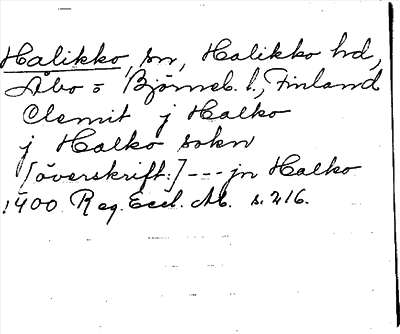 Halikko, sn, Halikko hd,
Åbo o Björneb. l., Finland
Clemit j Halko
j Halko sokn
[överskrift:] --- jn Halko
1400 Reg. Eccl. Ab. s. 216.